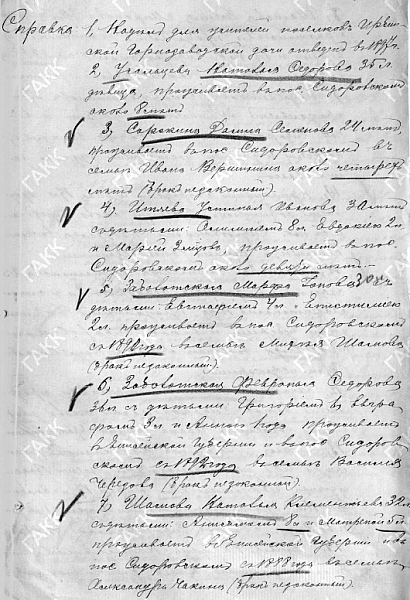 Справка 1, Надел для жителей поселков Ирбин-
ской Горнозаводской дачи отведен в 1897 г.
2, Угольцева Наталья Федорова 35 л.
девица, проживает в пос. Сидоровском
около 8 лет
3, Сорокина Дарья Семенова 24 лет,
проживает в пос. Сидоровском в
семье Ивана Вершинина около четырех
лет (брак недоконный).
4, Устинья Иванова 30 лет
с детьми: 8 л. Евдокею 2 л.
и Марьей проживает в пос.
Сидоровском около девяти лет.
5, Заболотская Марфа
детьми: Евстафием 4 л.
2 л. проживает в пос. Сидоровском
с 1890 года в семье Шасмова
(брак недоконный).
6, Заболотская Феврония Федорова
36 л. с детьми Григорием
3 л. и 1 года проживает
в Енисейской Губернии и в пос. Сидоров-
ском с 1892 года в семье Василия
Чередова (брак недоконный).
7, Шасмова Наталья Клементьева 32 л.
с детьми: 8 л. и Матреной 5 л.
проживает в Енисейской Губернии и в
пос. Сидоровском с 1888 года в семье
Александра Чакина (брак недоконный).